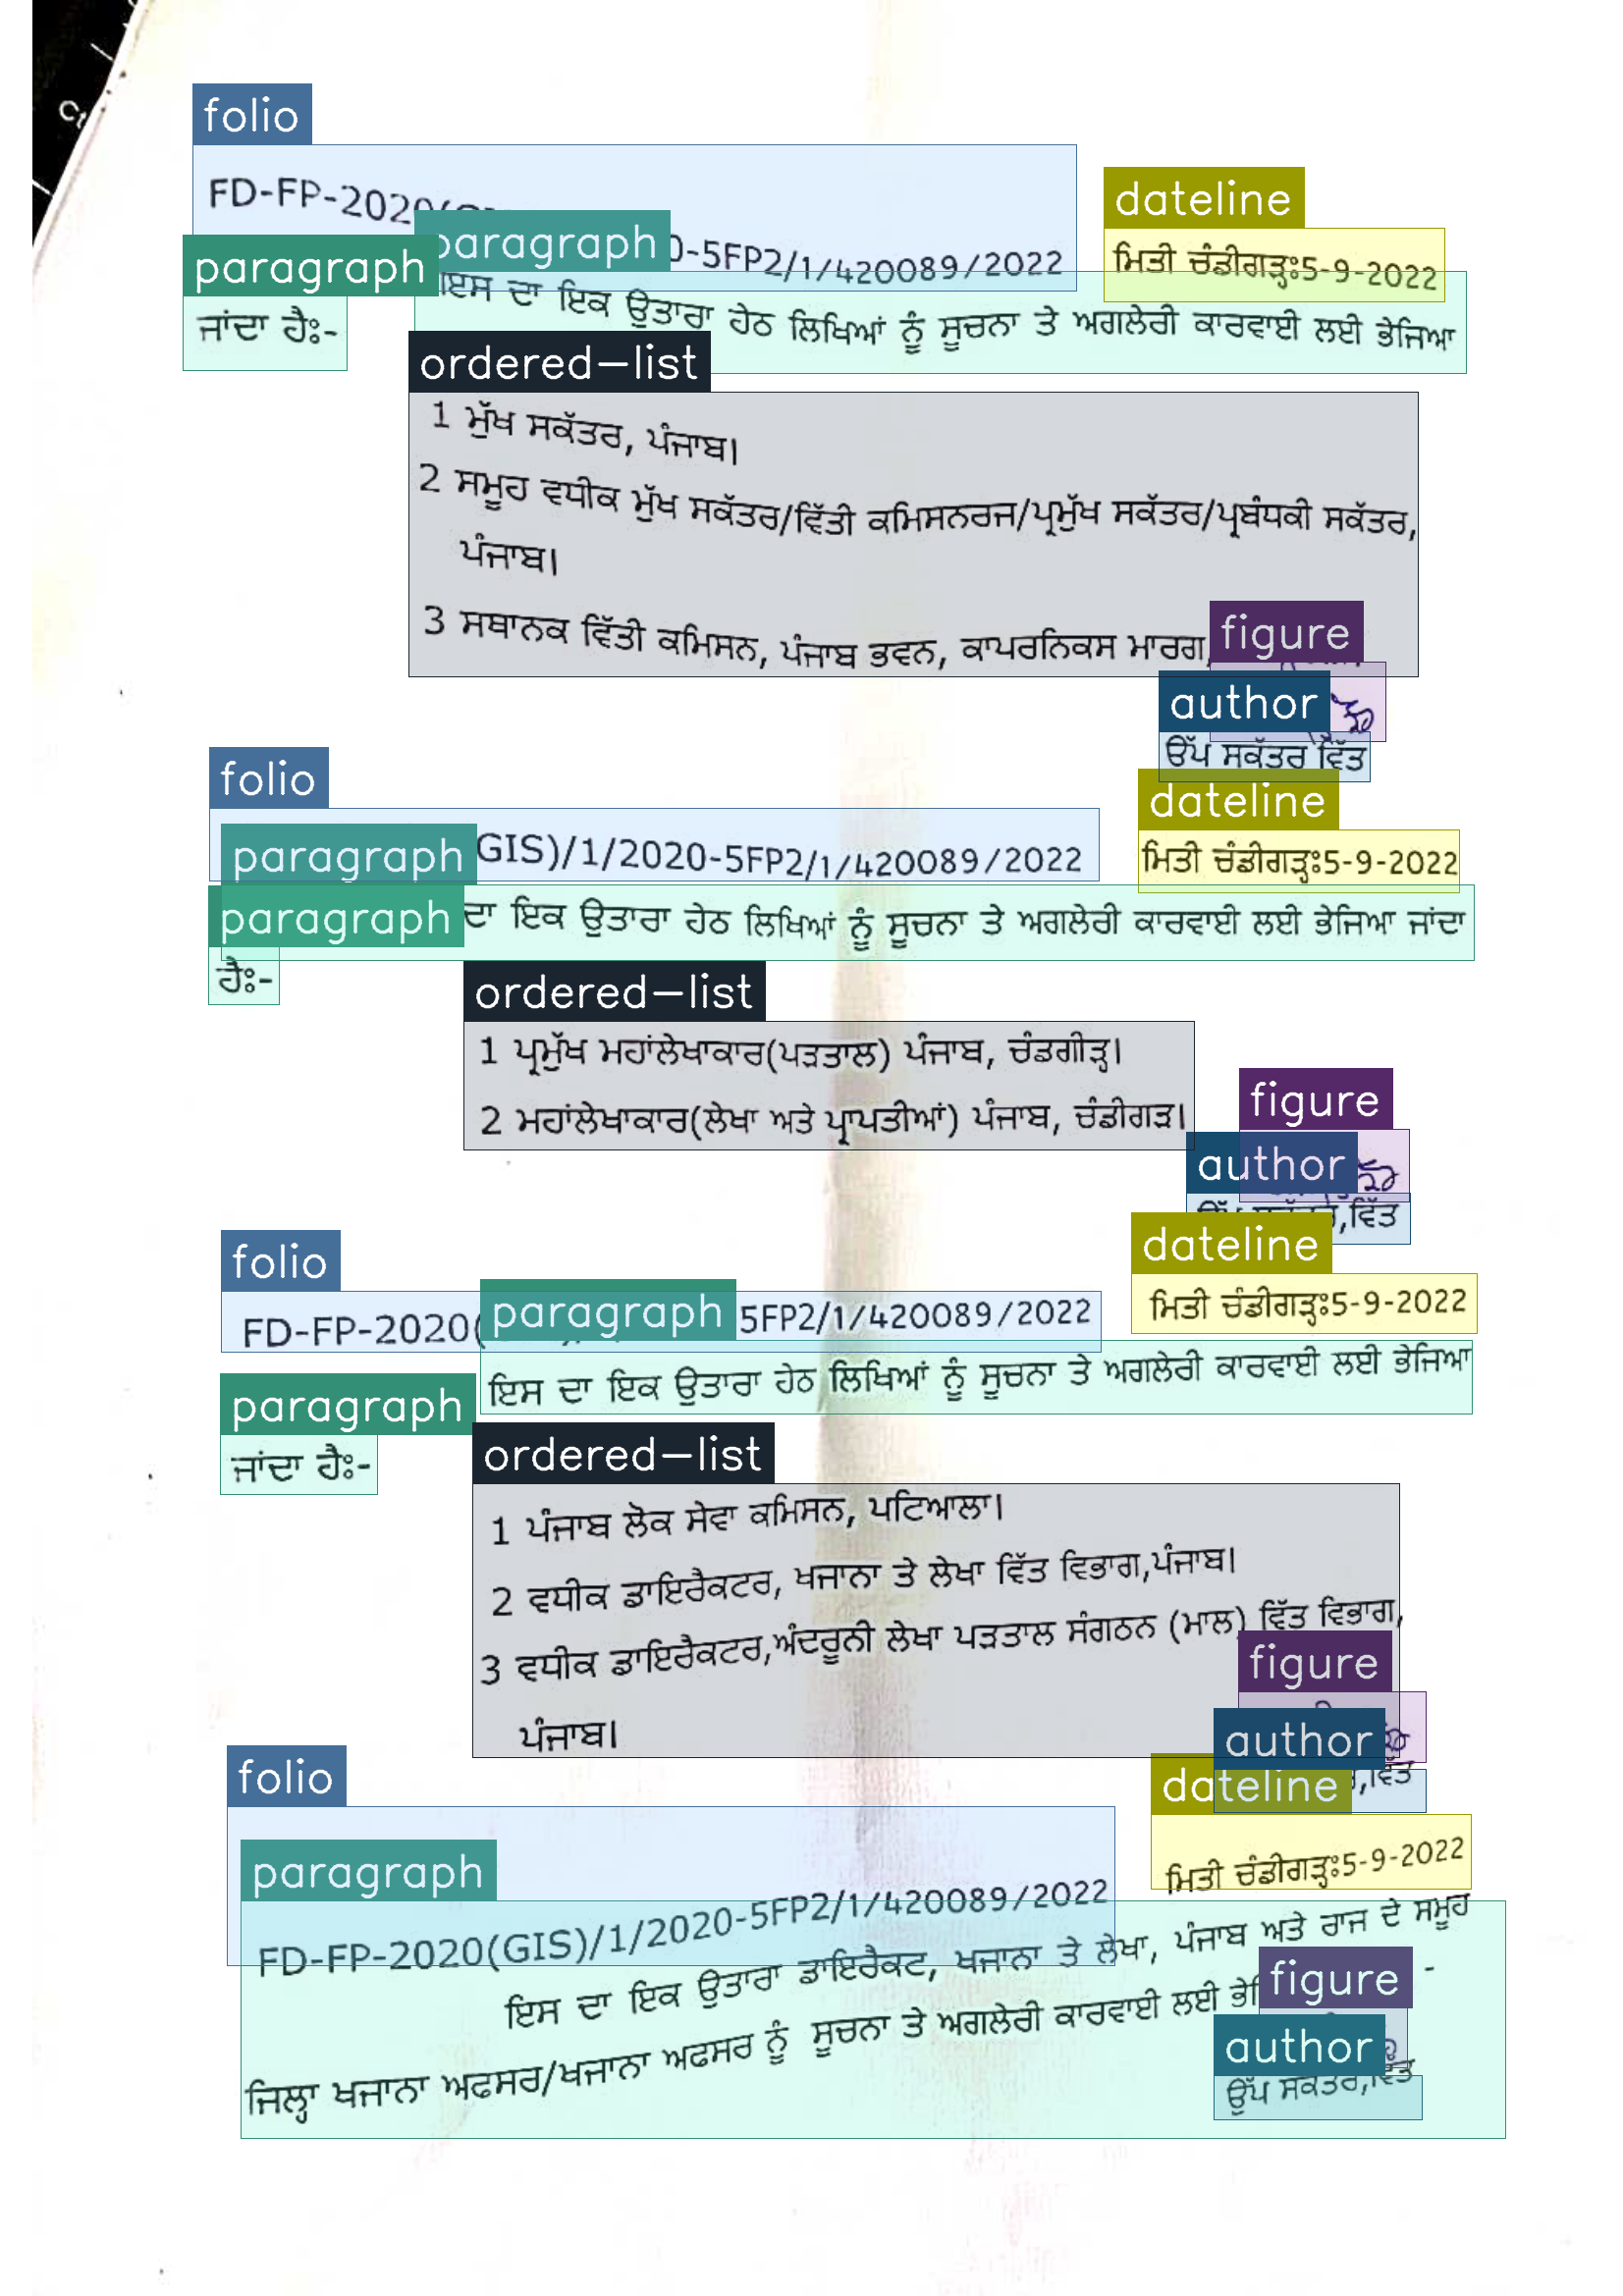 folio
FD-FP-2020
dateline
paragraph
0-5FP2/1/420089/2022
ਮਿਤੀ ਚੰਡੀਗੜ੍ਹਃ5-9-2022
paragraph
ਇਸ ਦਾ ਇਕ ਉਤਾਰਾ ਹੇਠ ਲਿਖਿਆਂ ਨੂੰ ਸੂਚਨਾ ਤੇ ਅਗਲੇਰੀ ਕਾਰਵਾਈ ਲਈ ਭੇਜਿਆ
ਜਾਂਦਾ ਹੈਃ-
ordered-list
1 ਮੁੱਖ ਸਕੱਤਰ, ਪੰਜਾਬ।
2 ਸਮੂਹ ਵਧੀਕ ਮੁੱਖ ਸਕੱਤਰ/ਵਿੱਤੀ ਕਮਿਸਨਰਜ/ਪ੍ਰਮੁੱਖ ਸਕੱਤਰ/ਪ੍ਰਬੰਧਕੀ ਸਕੱਤਰ,
ਪੰਜਾਬ।
3 ਸਥਾਨਕ ਵਿੱਤੀ ਕਮਿਸਨ, ਪੰਜਾਬ ਭਵਨ, ਕਾਪਰਨਿਕਸ ਮਾਰਗ,
figure
author
ਉੱਪ ਸਕੱਤਰ ਵਿੱਤ
folio
dateline
paragraph
GIS)/1/2020-5FP2/1/420089/2022
ਮਿਤੀ ਚੰਡੀਗੜ੍ਹਃ5-9-2022
paragraph
ਦਾ ਇਕ ਉਤਾਰਾ ਹੇਠ ਲਿਖਿਆਂ ਨੂੰ ਸੂਚਨਾ ਤੇ ਅਗਲੇਰੀ ਕਾਰਵਾਈ ਲਈ ਭੇਜਿਆ ਜਾਂਦਾ
ਹੈਃ-
ordered-list
1 ਪ੍ਰਮੁੱਖ ਮਹਾਂਲੇਖਾਕਾਰ(ਪੜਤਾਲ) ਪੰਜਾਬ, ਚੰਡਗੀੜ੍ਹ।
2 ਮਹਾਂਲੇਖਾਕਾਰ(ਲੇਖਾ ਅਤੇ ਪ੍ਰਾਪਤੀਆਂ) ਪੰਜਾਬ, ਚੰਡੀਗੜ।
figure
author
ਵਿੱਤ
folio
dateline
FD-FP-2020(
paragraph
5FP2/1/420089/2022
ਮਿਤੀ ਚੰਡੀਗੜ੍ਹਃ5-9-2022
ਇਸ ਦਾ ਇਕ ਉਤਾਰਾ ਹੇਠ ਲਿਖਿਆਂ ਨੂੰ ਸੂਚਨਾ ਤੇ ਅਗਲੇਰੀ ਕਾਰਵਾਈ ਲਈ ਭੇਜਿਆ
paragraph
ਜਾਂਦਾ ਹੈਃ-
ordered-list
1 ਪੰਜਾਬ ਲੋਕ ਸੇਵਾ ਕਮਿਸਨ, ਪਟਿਆਲਾ।
2 ਵਧੀਕ ਡਾਇਰੈਕਟਰ, ਖਜਾਨਾ ਤੇ ਲੇਖਾ ਵਿੱਤ ਵਿਭਾਗ,ਪੰਜਾਬ।
3 ਵਧੀਕ ਡਾਇਰੈਕਟਰ,ਅੰਦਰੂਨੀ ਲੇਖਾ ਪੜਤਾਲ ਸੰਗਠਨ (ਮਾਲ) ਵਿੱਤ ਵਿਭਾਗ,
ਪੰਜਾਬ।
figure
author
ਵਿੱਤ
folio
dateline
paragraph
FD-FP-2020(GIS)/1/2020-5FP2/1/420089/2022
ਮਿਤੀ ਚੰਡੀਗੜ੍ਹਃ5-9-2022
ਇਸ ਦਾ ਇਕ ਉਤਾਰਾ ਡਾਇਰੈਕਟ, ਖਜਾਨਾ ਤੇ ਲੇਖਾ, ਪੰਜਾਬ ਅਤੇ ਰਾਜ ਦੇ ਸਮੂਹ
ਜਿਲ੍ਹਾ ਖਜਾਨਾ ਅਫਸਰ/ਖਜਾਨਾ ਅਫਸਰ ਨੂੰ ਸੂਚਨਾ ਤੇ ਅਗਲੇਰੀ ਕਾਰਵਾਈ ਲਈ
figure
author
ਉੱਪ ਸਕੱਤਰ,ਵਿੱਤ